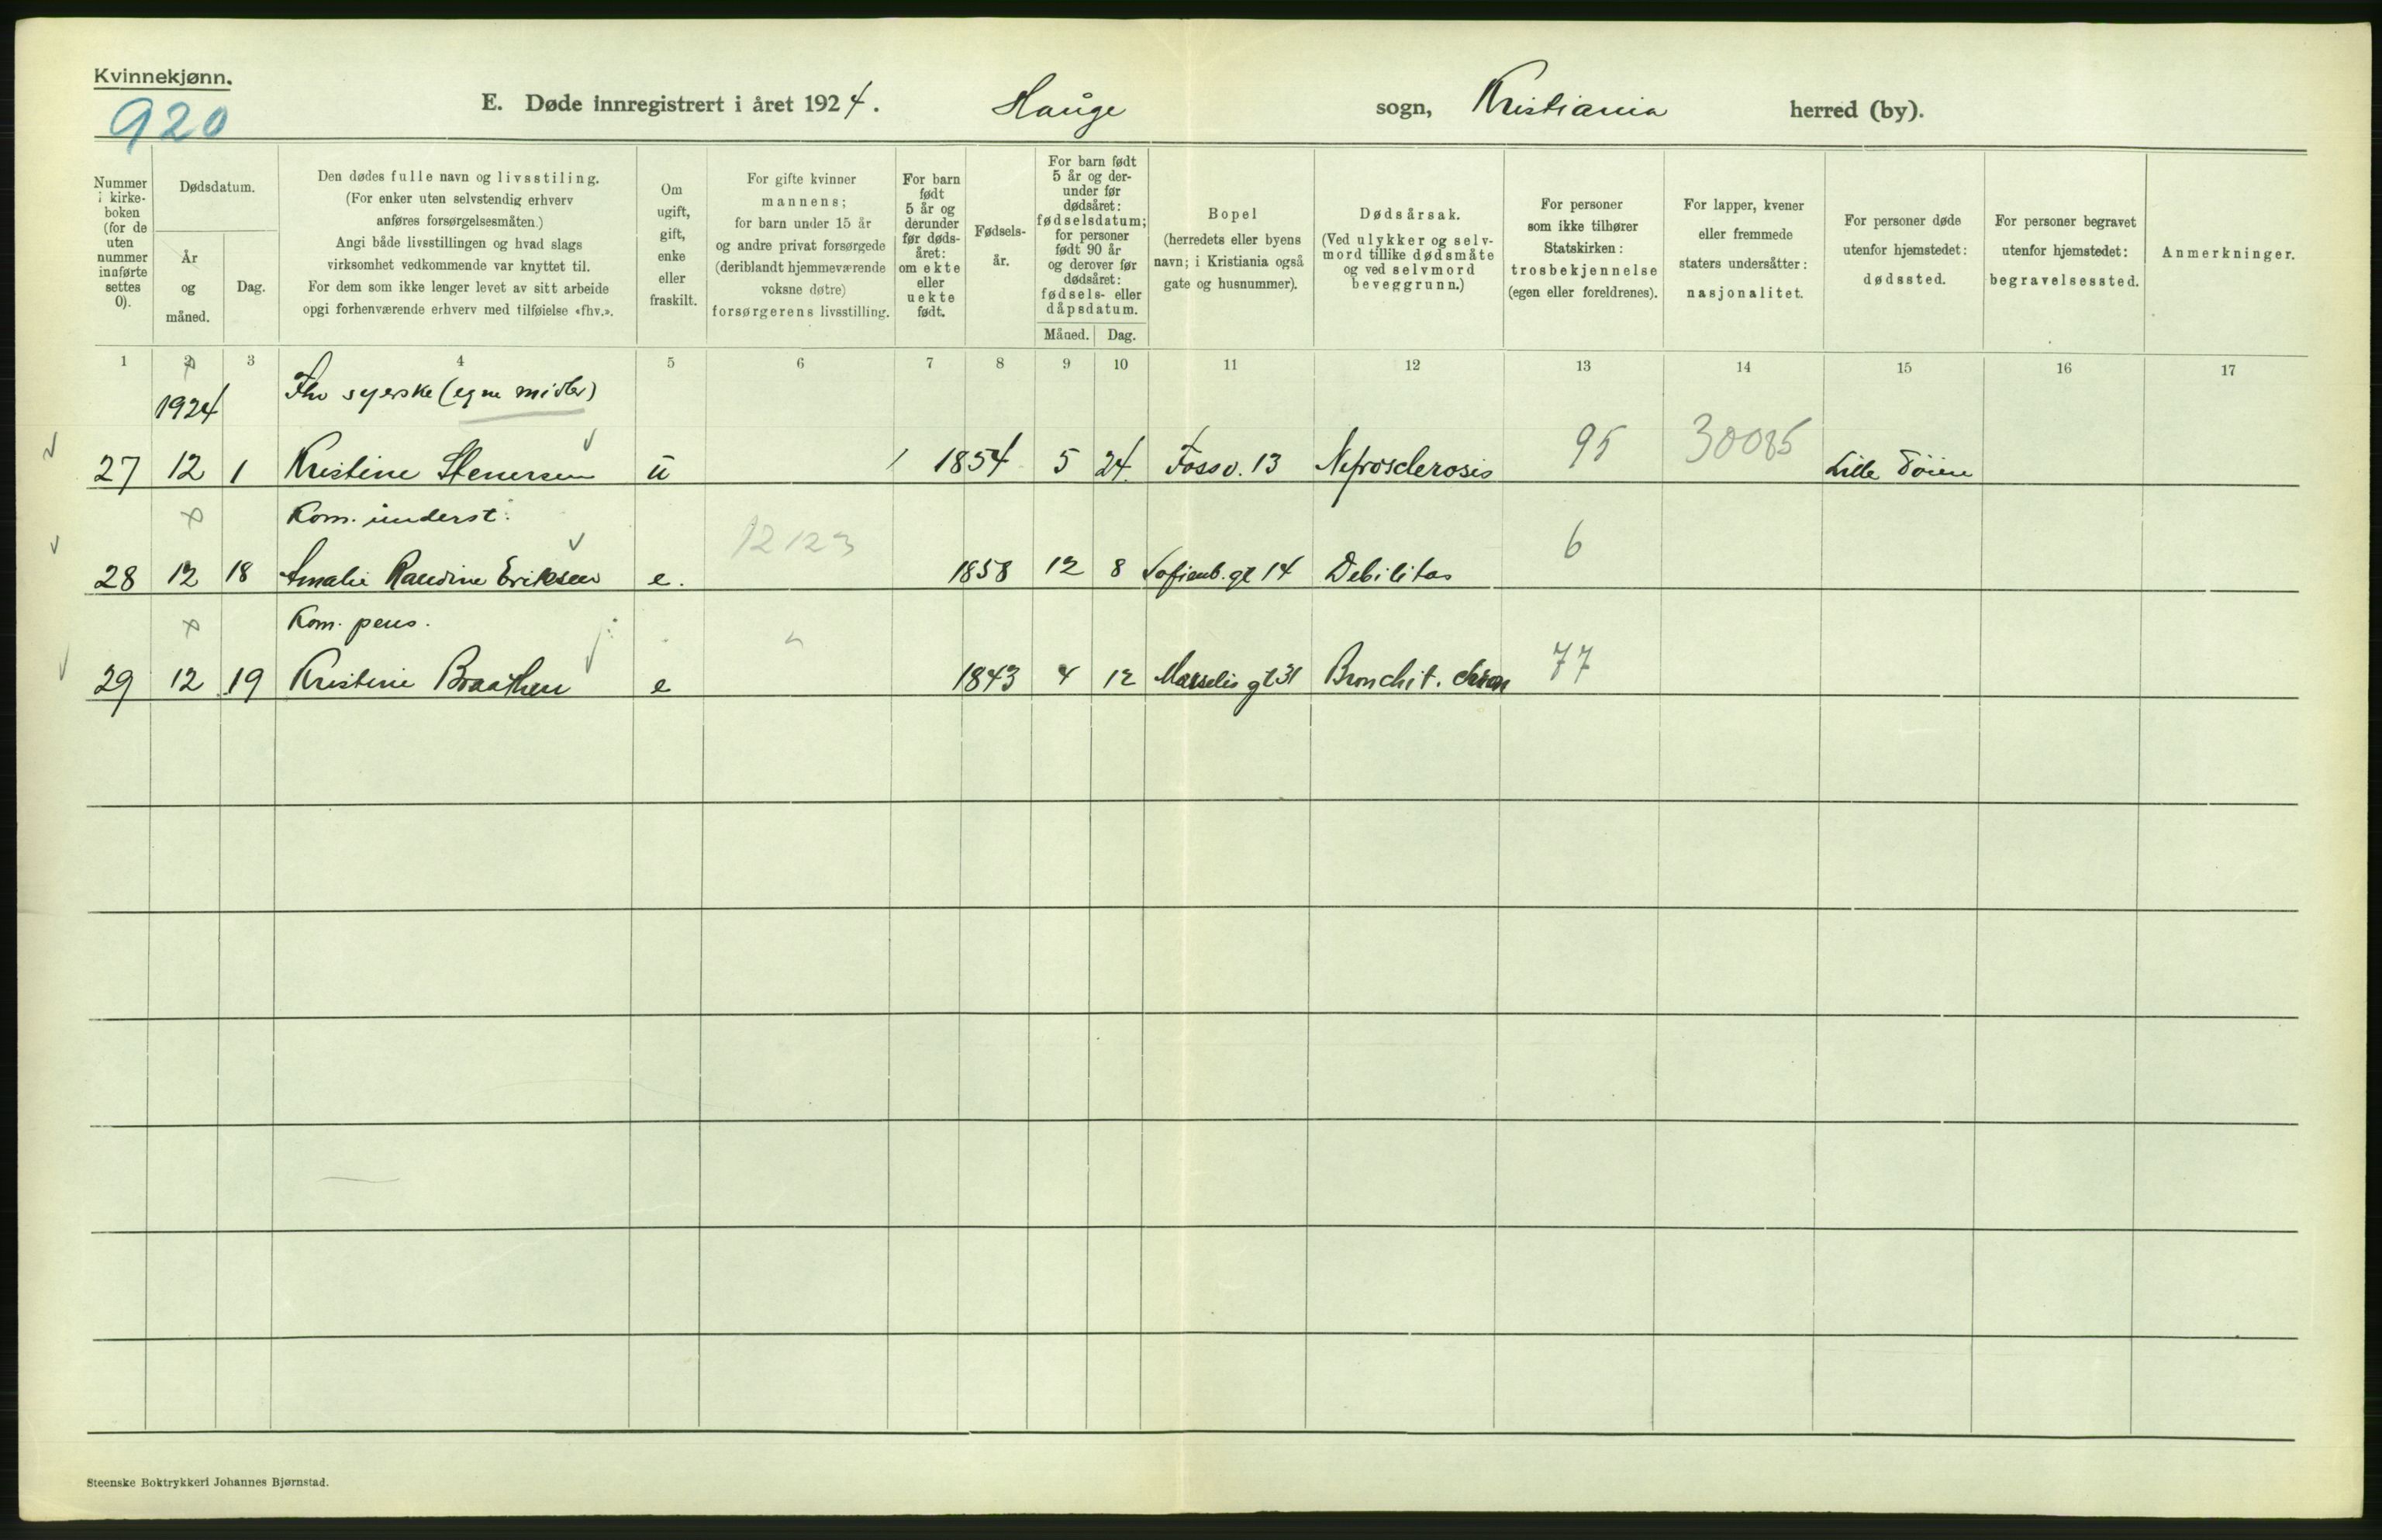 Kvinnekjønn.
920
E. Døde innregistrert i året 1924. Hauge sogn, Kristiania herred (by).
Nummer i kirke-boken (for de uten nummer innførte settes 0).
Dødsdatum.
År og måned.
Dag.
Den dødes fulle navn og livsstiling.
(For enker uten selvstendig erhverv
anføres forsørgelsesmåten.)
Angi både livsstillingen og hvad slags
virksomhet vedkommende var knyttet til.
For dem som ikke lenger levet av sitt arbeide
opgi forhenværende erhverv med tilføielse «fhv.».
Om
ugift,
gift,
enke
eller
fraskilt.
For gifte kvinner
mannens;
for barn under 15 år
og andre privat forsørgede
(deriblandt hjemmeværende
voksne døtre)
forsørgerens livsstilling.
For barn
født
5 år og
derunder
før døds-
året:
om ekte
eller
uekte
født.
Fødsels-
år.
For barn født
5 år og der-
under før
dødsåret:
fødselsdatum;
for personer
født 90 år
og derover før
dødsåret:
fødsels- eller
dåpsdatum.
Måned. Dag.
Bopel
(herredets eller byens
navn; i Kristiania også
gate og husnummer).
Dødsårsak.
(Ved ulykker og selv-
mord tillike dødsmåte
og ved selvmord
beveggrunn.)
For personer
som ikke tilhører
Statskirken:
trosbekjennelse
(egen eller foreldrenes).
For lapper, kvener
eller fremmede
staters undersåtter:
nasjonalitet.
For personer døde
utenfor hjemstedet:
dødssted.
For personer begravet
utenfor hjemstedet:
begravelsessted.
Anmerkninger.
1 2 3 4 5 6 7 8 9 10 11 12 13 14 15 16 17
1924 Fhv syerske (egne midler)
27 12 1 Kristine Stenersen u 1854 5 24 Fossv. 13 Nefrosclerosis 95 30085 Lille Töien
Kom. underst.
28 12 18 Amalie Randine Eriksen e. 12123 1858 12 8 Sofienb. gt 14 Debilitas 6
Kom. pens.
29 12 19 Kristine Braathen e 1843 4 12 Marselis gt 31 Bronchit. chron 77
Steenske Boktrykkeri Johannes Bjørnstad.